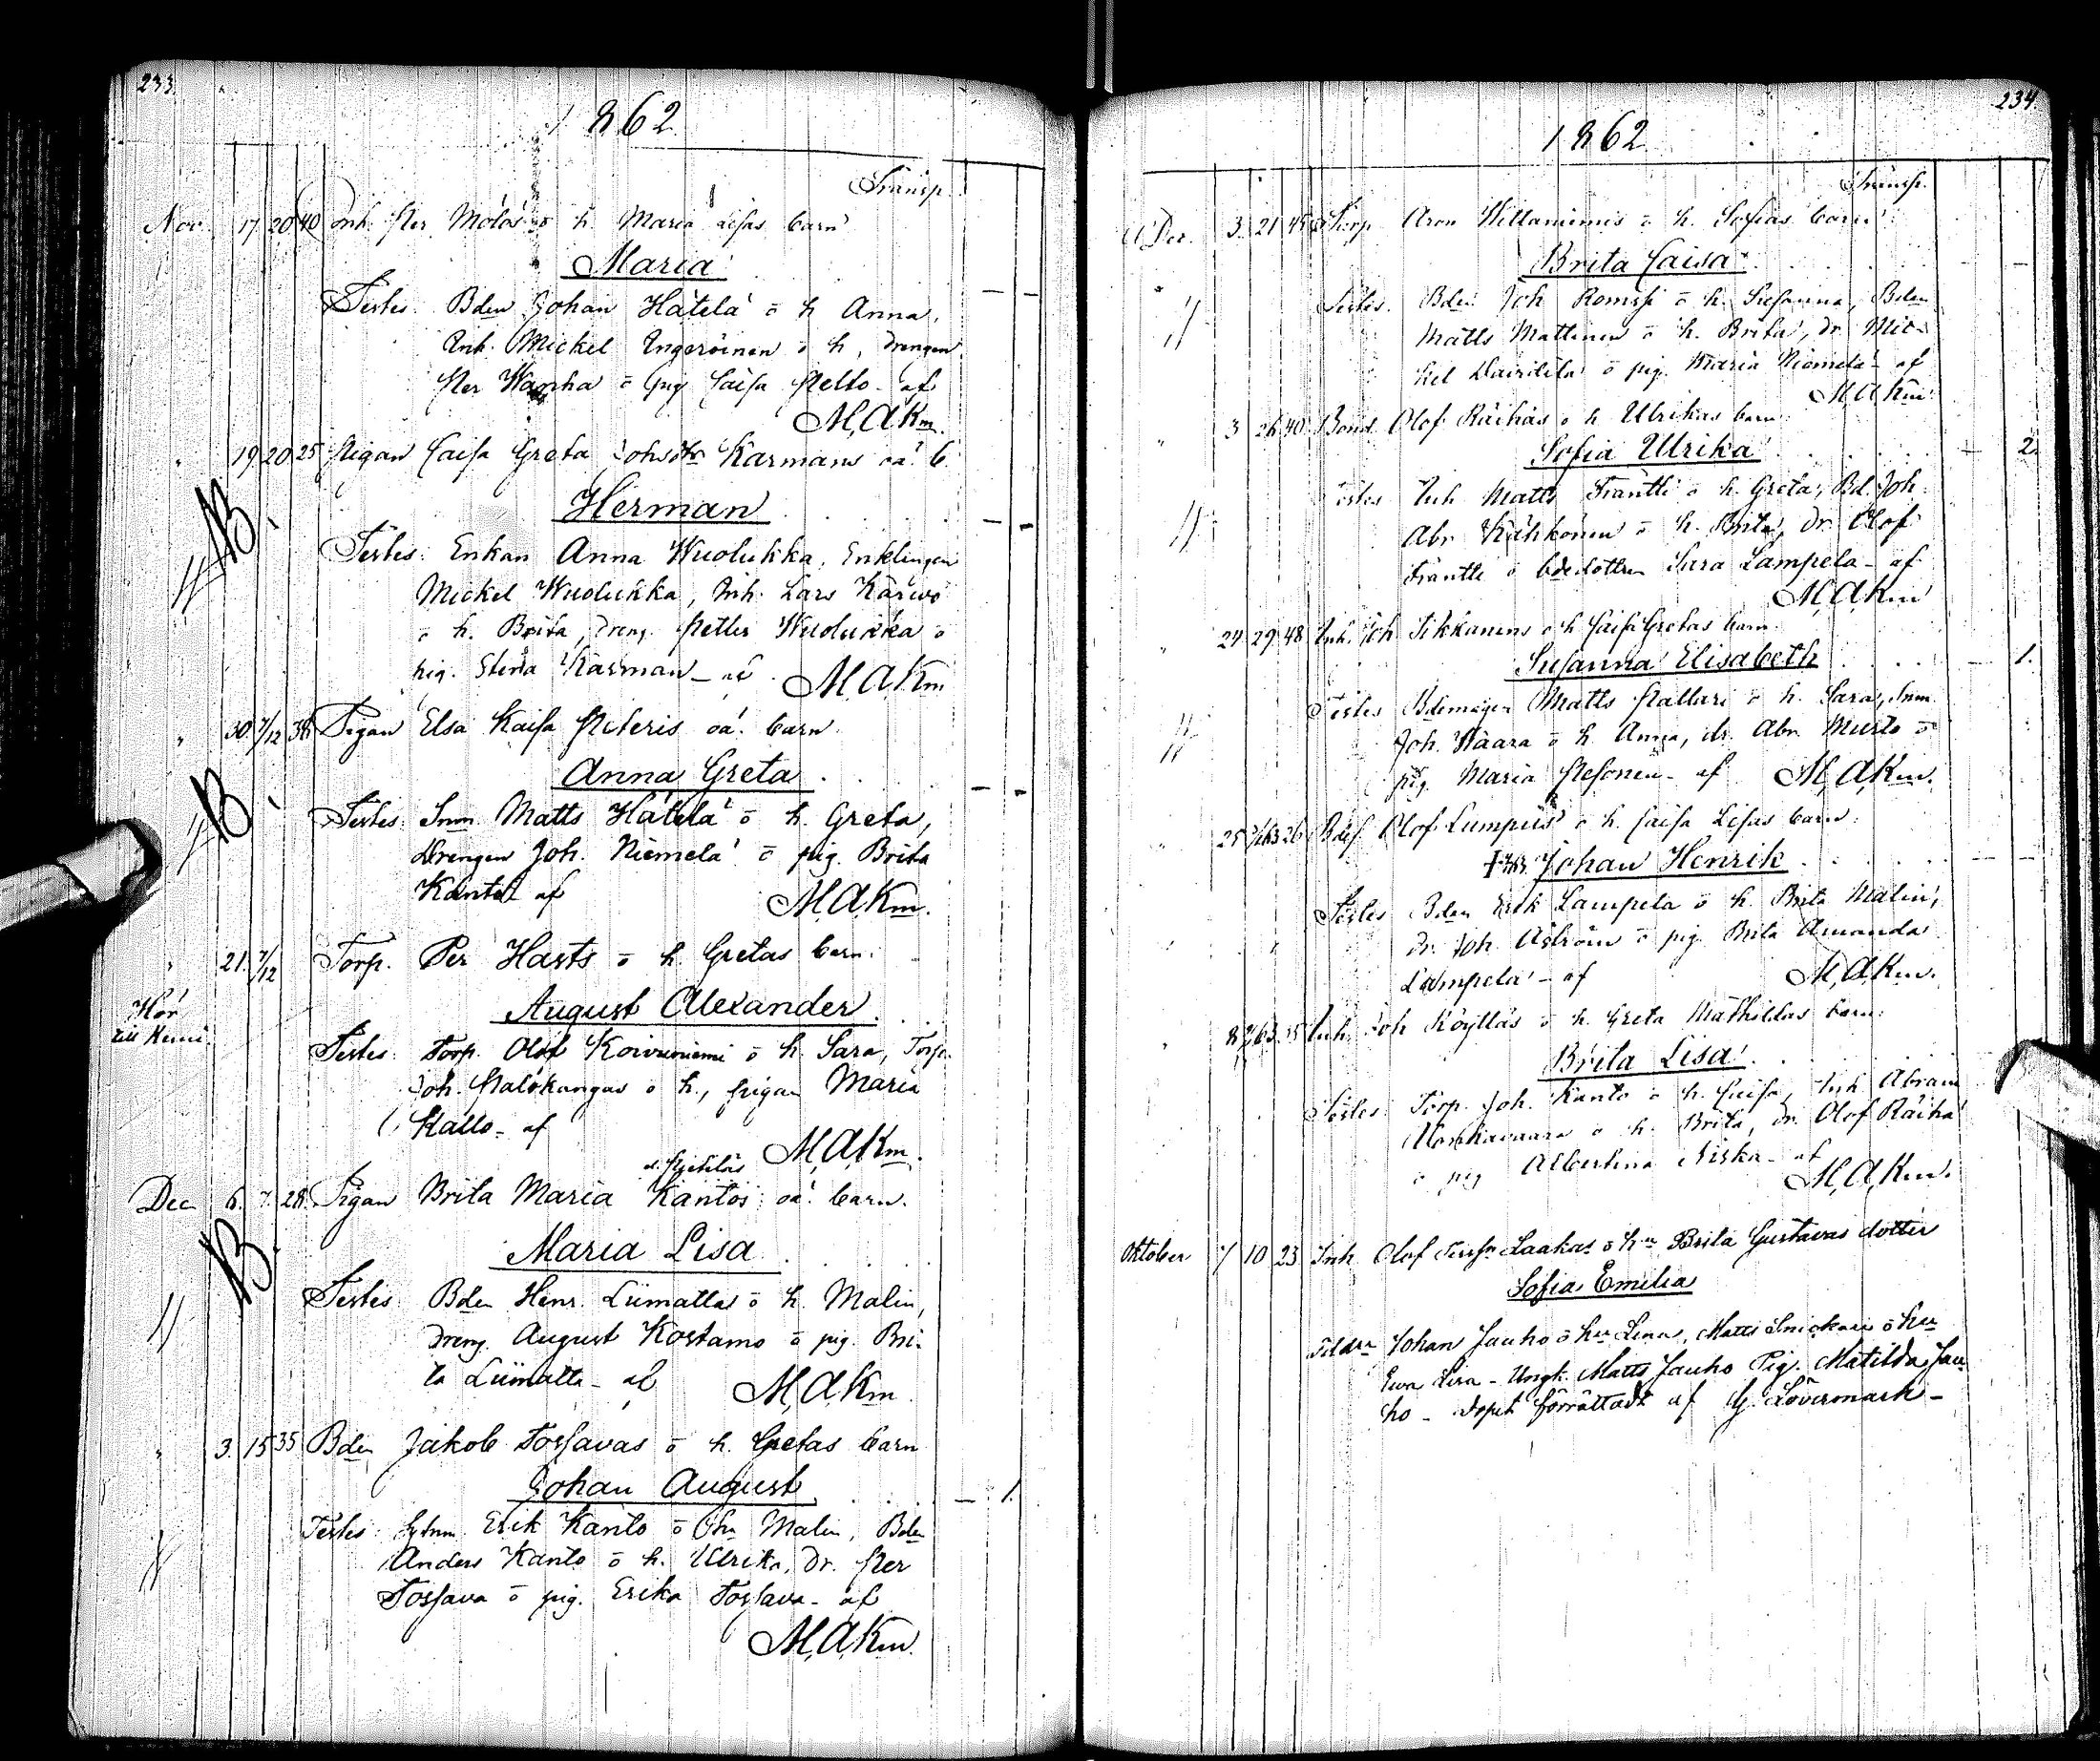 233.
1862.
Transp.
Nov. 17 20 40 Inh. Per Mölös o h. Maria Lisas barn
Maria
Testes. Bden Johan Hätelä o h Anna,
Inh. Mickel Ingeröinen o h, Drengen
Per Wanha o pig Caisa Pello - af
M,A,Km.
" 19 20 25 Pigan Caisa Greta Johsdtr Karmans oä. b.
Herman
Testes: Enkan Anna Wuolukka, Enklingen
Mickel Wuolukka, Inh. Lars Karwo
o h. Brita, Dreng. Petter Wuolukka o
pig. Stina Karman - af M,A,Km
" 30. 7/12 38 Pigan Elsa Kaisa Peteris oä. barn
Anna Greta
Testes: Snm Matts Hätelä o h. Greta,
Drengen Joh. Niemelä o pig. Brita
Kantol af M,A,Km.
" 21. 7/12 Torp. Per Harts o h Gretas barn.
Hör
till Kemi.
August Alexander
Testes: Torp. Olof Koivuniemi o h. Sara, Torp.
Joh. Palokangas o h, pigan Maria
Kallo - af
M,A,Km.
Dec 6. 7. 28. Pigan Brita Maria Kantos oä. barn.
Maria Lisa
Testes: Bden Henr. Liimatta o h. Malin,
Dreng. August Kostamo o pig. Bri-
ta Liimatta - af M,A,Km.
" 3. 15 35 Bden Jakob Torsavas o h. Gretas barn
Johan August 1.
Testes: Erik Kanto o Hu Malin, Bden
Anders Kanto o h. Ulrika, Dr. Per
Torsava o pig. Erika Torsava - af
M,A,Km.
234.
1862
Transp.
Dec. 3. 21 45 Torp Aron Willaniemis o h. Sofias barn
Brita Caisa
Testes. Bden Joh Romsi o h. Susanna, Bden
Matts Mattinen o h. Brita, dr. Mic-
kel o pig. Maria Niemelä - af
M,A,Km.
" 3 26 40 Bond. Olof Räihäs o h Ulrikas barn
Sofia Ulrika 2.
Testes Inh Matts Frantti o h. Greta, Bd. Joh.
Abr. Kähkönen o h. Brita, Dr. Olof
Frantti o bdedottren Sara Lampela - af
M,A,Km
" 24 29 48 Inh. Joh Tikkanens o h Caisa Gretas barn.
Susanna Elisabeth 1.
Testes Bdemågen Matts Pallari o h. Sara, Snm
Joh. Waara o h. Anna, dr. Abr. Murto o
pig. Maria Pesonen - af M,A,Km.
" 25 Olof Lumpus o h. Caisa Lisas barn.
Johan Henrik
Testes Bden Erik Lampela o h. Brita Malin,
Dr. Joh. Åström o pig. Brita Amanda
Lampela - af M,A,Km.
" Inh. Joh Köylläs o h. Greta Mathildas barn.
Brita Lisa
Testes: Torp. Joh. Kanto o h. Caisa, Inh Abram
o h. Brita, dr. Olof Räihä
o pig Albertina Niska - af
M,A,Km.
Oktober 7 10 23 Inh Olof Laakas o hu Brita Gustavas dotter
Sofia Emelia
Johan Jauho o hu Lena, Matts Snickari o hu
Ewa Lisa - Ungk. Matts Jauho Pig. Matilda Jau
ho - dopet förrättadt af G. Lövenmark -